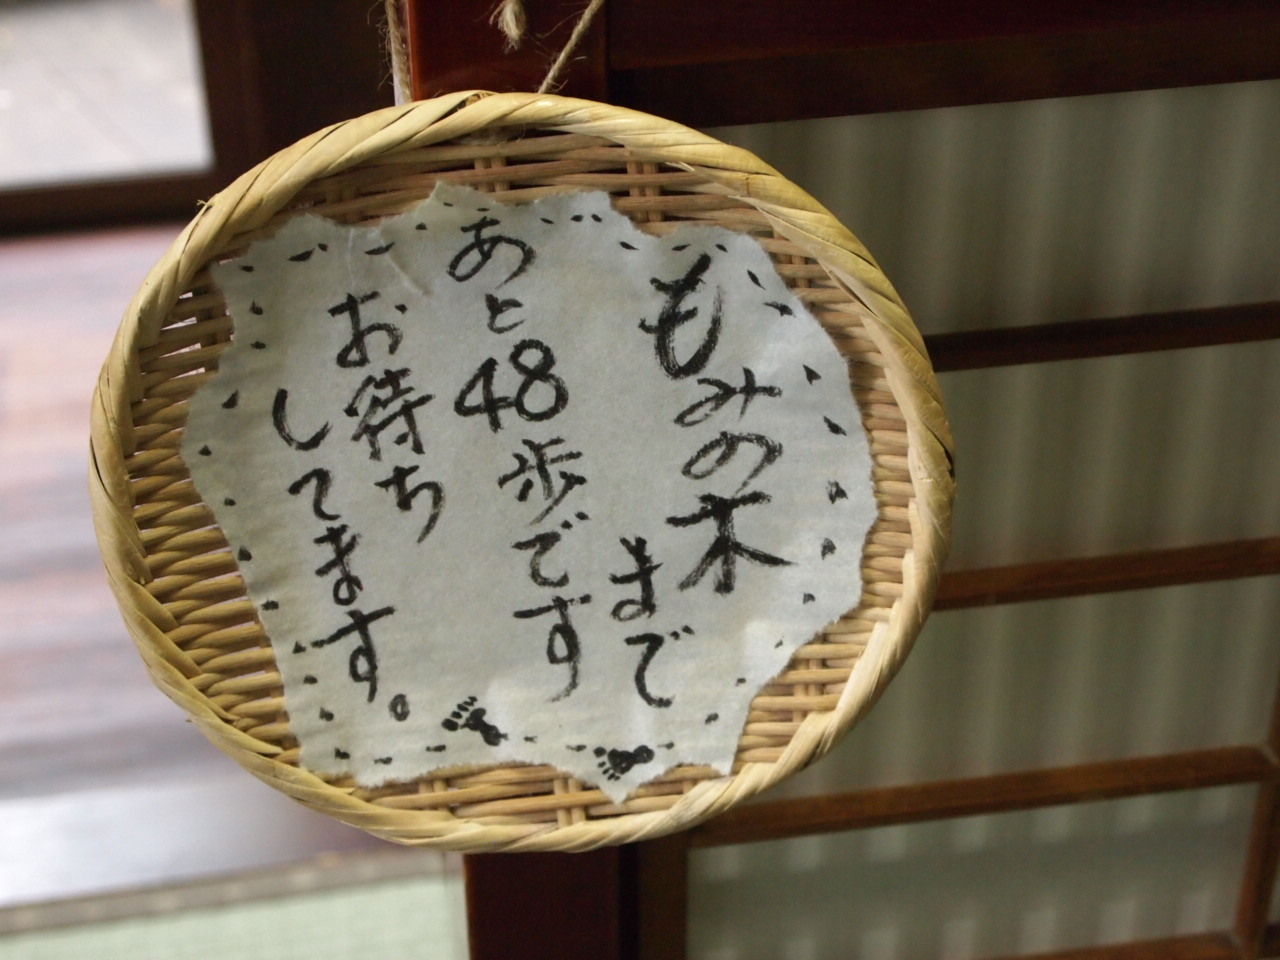 もみの木
まで
あと48歩です
お待ち
してます。